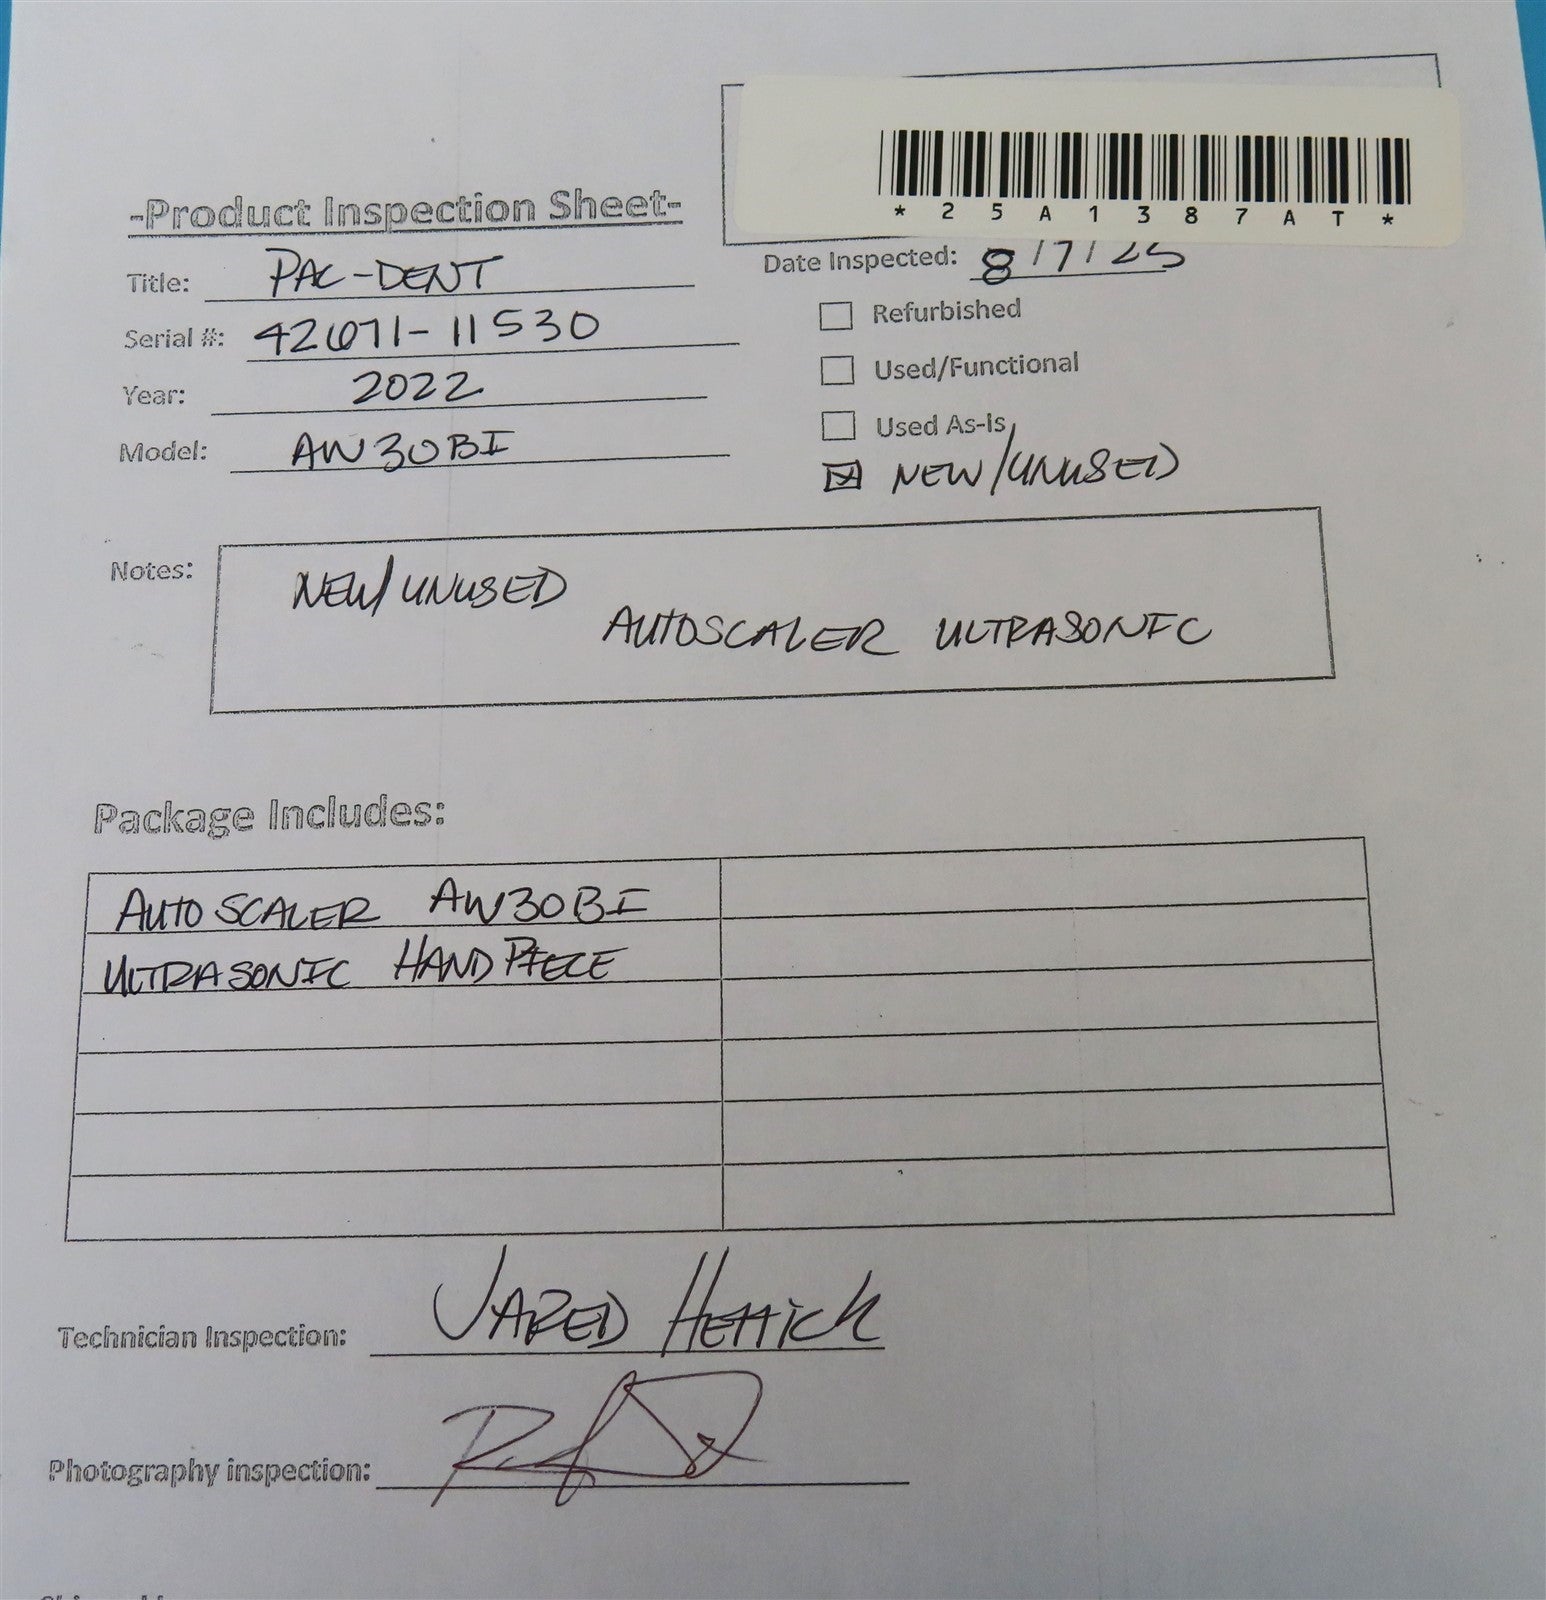 *25A1387AT*
-Product Inspection Sheet-
Title: PAC-DENT
Date Inspected: 8/7/25
Serial #: 42671-11530
Refurbished
Year: 2022
Used/Functional
Model: AW30BI
Used As-Is
NEW/UNUSED
Notes: NEW/UNUSED
AUTOSCALER ULTRASONIC
Package Includes:
AUTOSCALER AW30BI
ULTRASONIC HANDPIECE
Technician Inspection: JARED
Photography inspection: